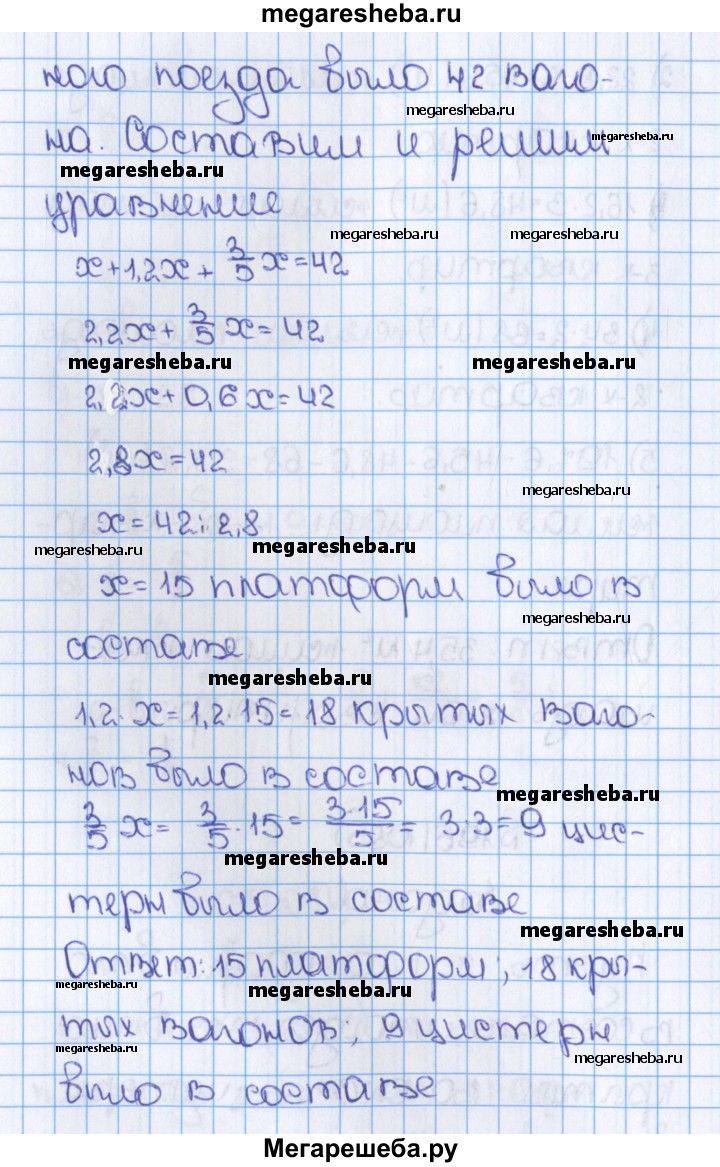 megaresheba.ru
ного поезда было 42 ваго-
megaresheba.ru
на. Составим и решим
megaresheba.ru
megaresheba.ru
уравнение
megaresheba.ru
megaresheba.ru
x+1,2x+ 3/5 x=42
2,2x+ 3/5 x=42
megaresheba.ru
megaresheba.ru
2,2x+0,6x=42
2,8x=42
megaresheba.ru
x=42:2,8
megaresheba.ru
megaresheba.ru
x=15 платформ было в
megaresheba.ru
составе
megaresheba.ru
1,2·x=1,2·15=18 крытых ваго-
нов было в составе
megaresheba.ru
3/5 x= 3/5 ·15= 3·15/5 = 3·3=9 цис-
megaresheba.ru
терн было в составе
megaresheba.ru
Ответ: 15 платформ; 18 кры-
megaresheba.ru
megaresheba.ru
тых вагонов; 9 цистерн
megaresheba.ru
megaresheba.ru
было в составе
Мегарешеба.ру